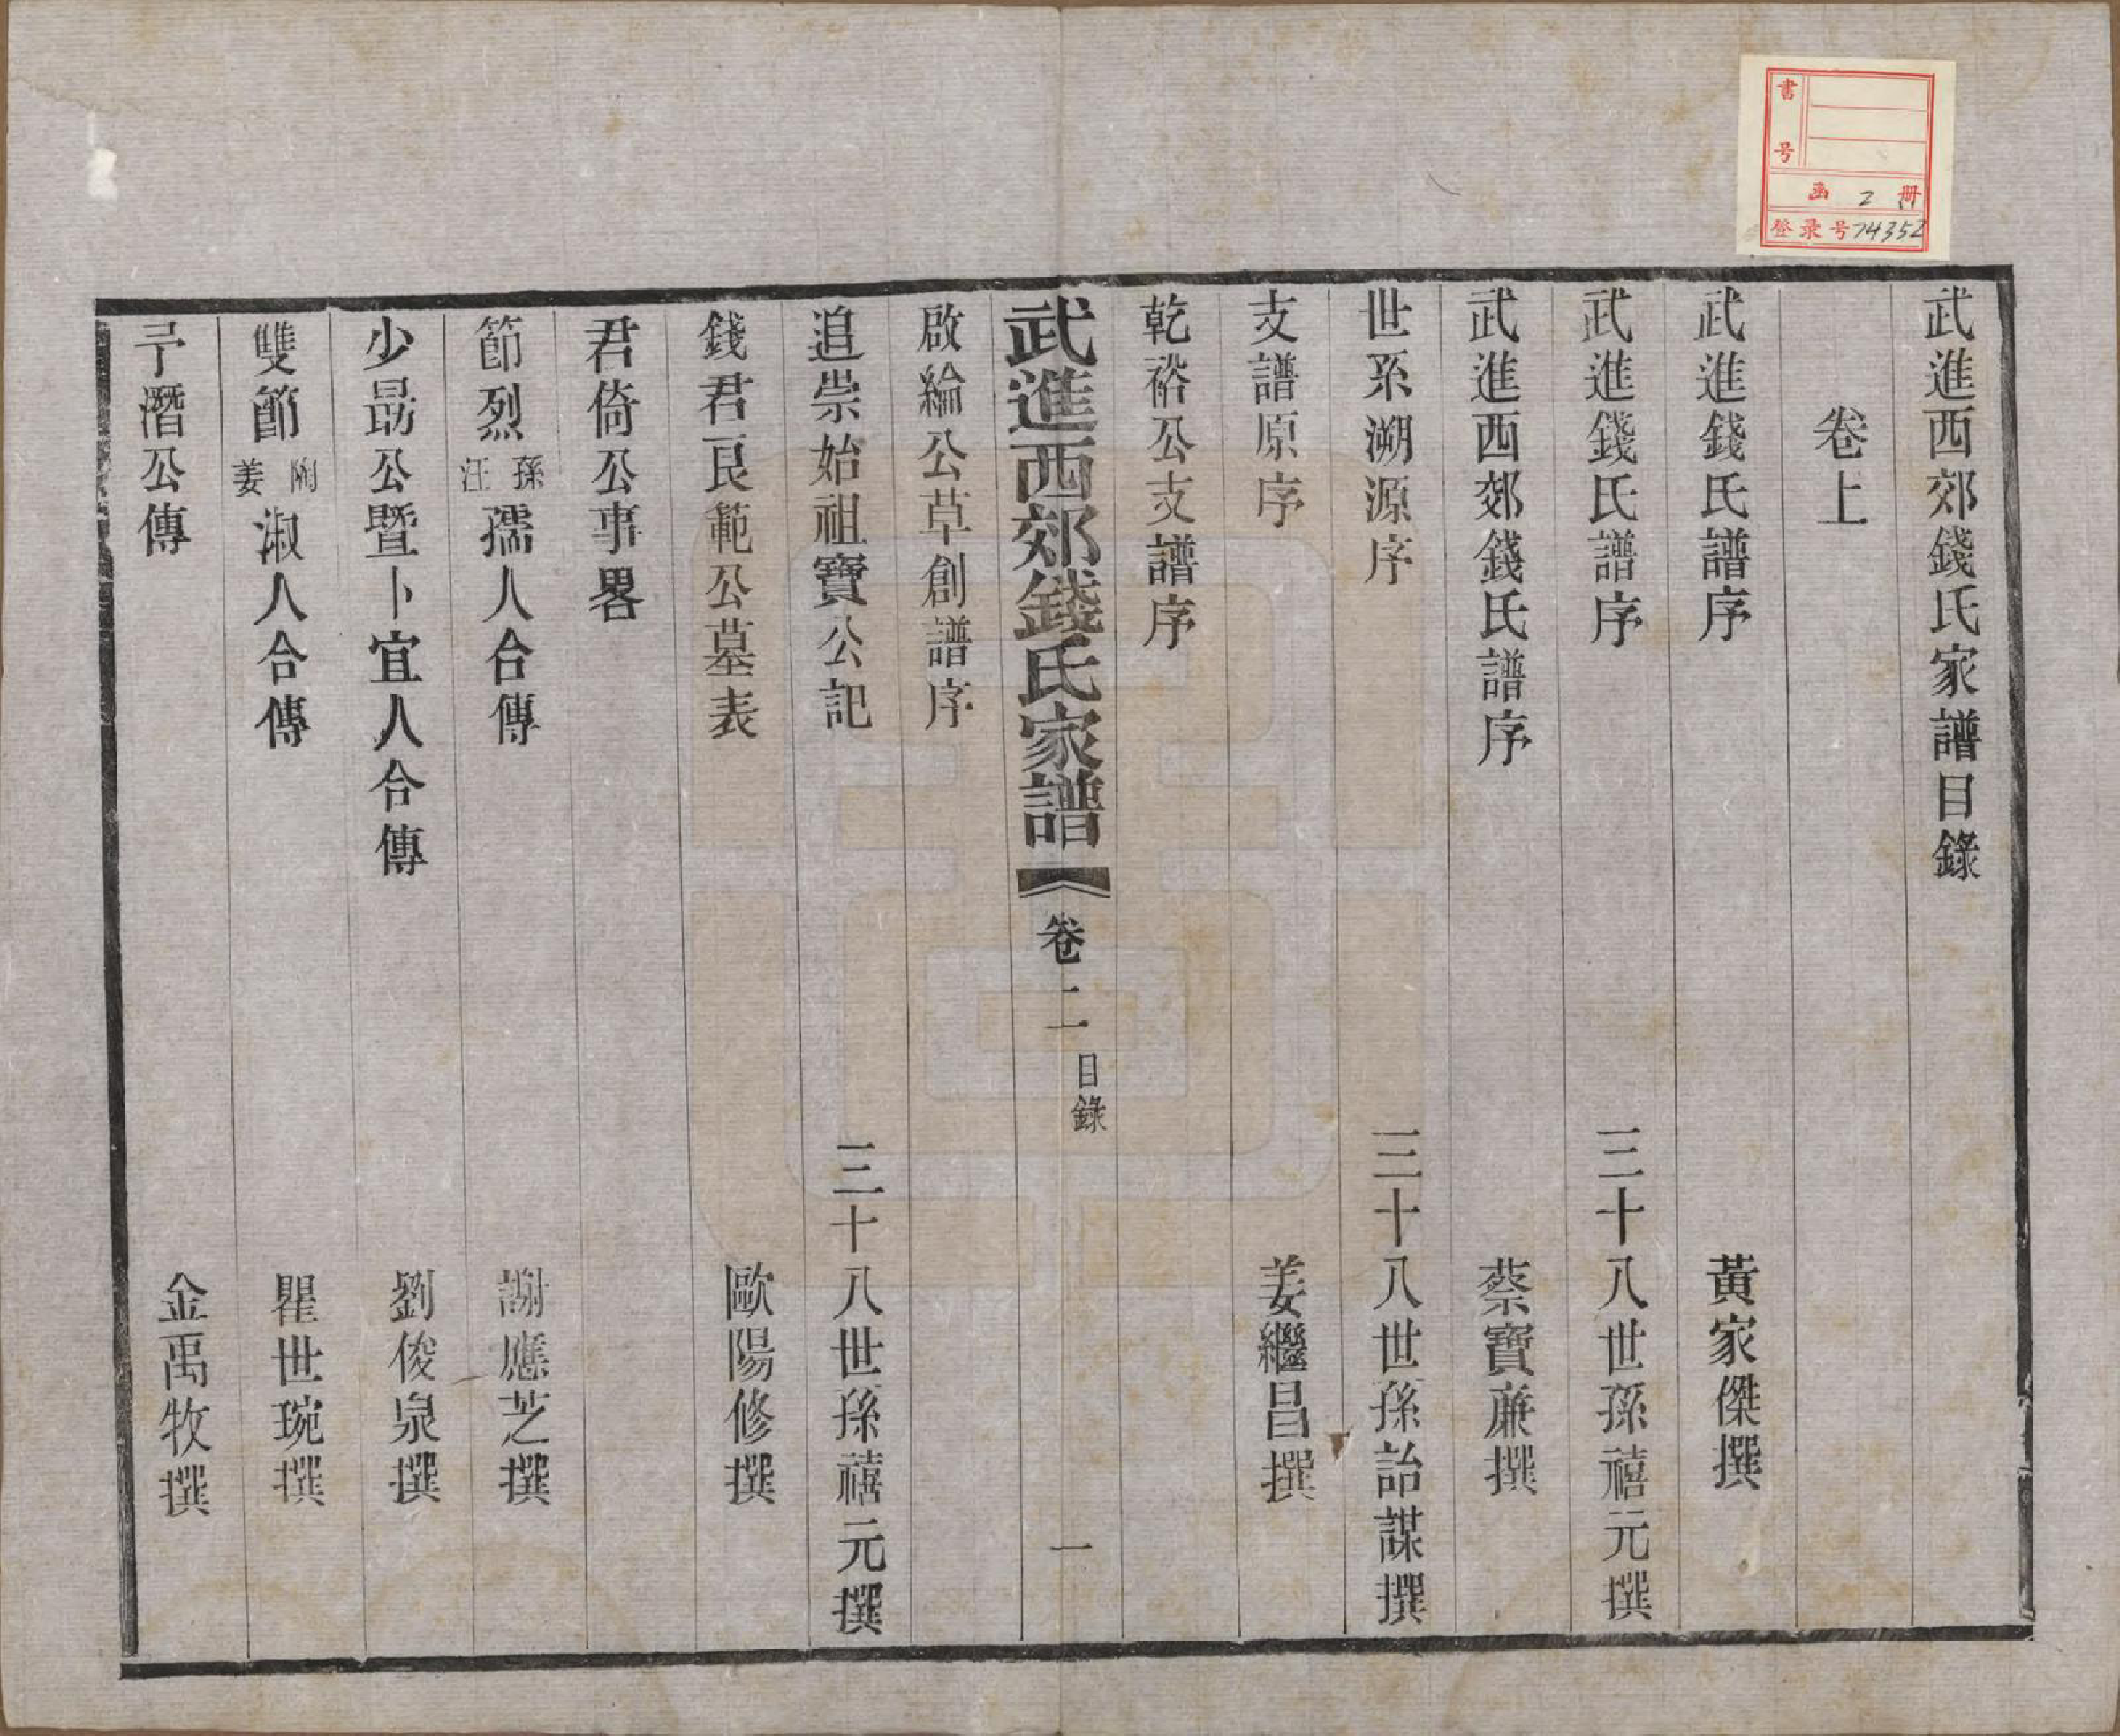 武進西郊錢氏家譜目錄
卷上
武進錢氏譜序 黃家傑撰
武進錢氏譜序 三十八世孫禧元撰
武進西郊錢氏譜序 蔡寶廉撰
世系溯源序 三十八世孫詒謀撰
支譜原序 姜繼昌撰
乾裕公支譜序
武進西郊錢氏家譜 卷二 目錄 一
啟綸公草創譜序
追崇始祖寶公記 三十八世孫禧元撰
錢君良範公墓表 歐陽修撰
君倚公事畧
節烈孫汪孺人合傳 謝應芝撰
少勗公暨卜宜人合傳 劉俊泉撰
雙節陶姜淑人合傳 瞿世琬撰
子潛公傳 金禹牧撰
書号
函 2 册
登录号 74352